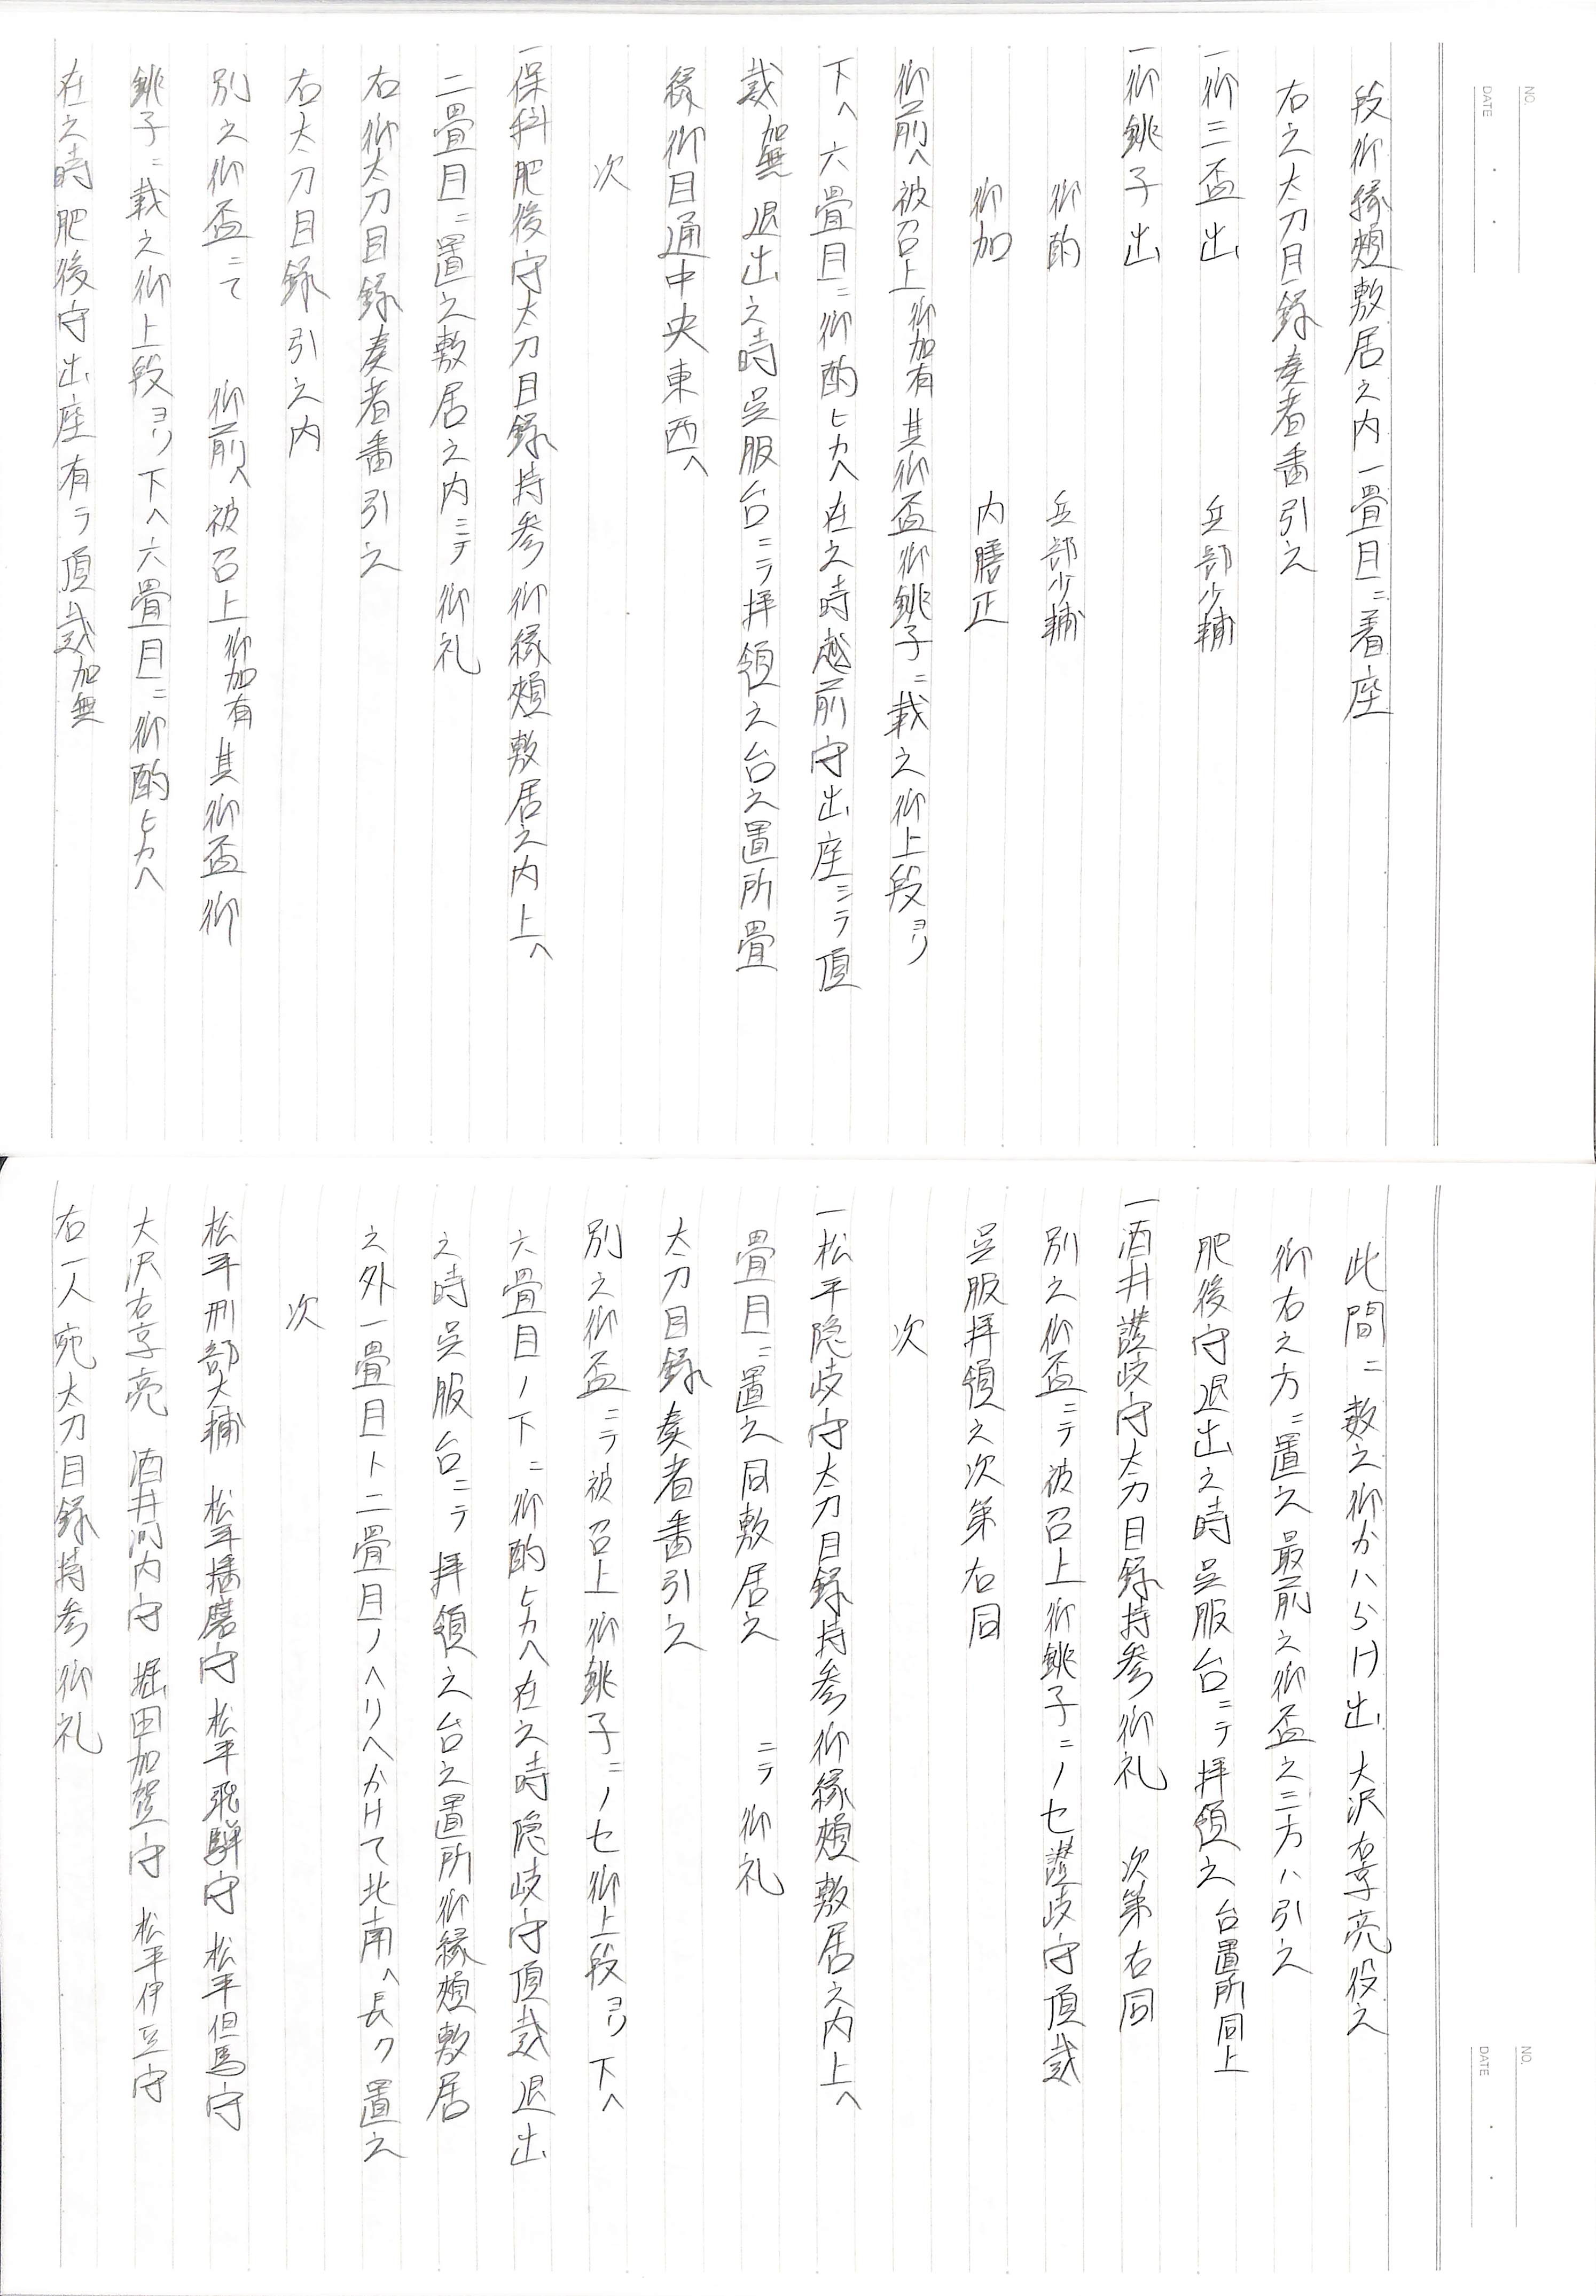 NO.
DATE
段御縁頬敷居之内一畳目ニ着座
右之太刀目録奏者番引之
一御三盃出　兵部少輔
一御銚子出
御酌　兵部少輔
御加　内膳正
御前ヘ被召上御加有其御盃御銚子ニ載之御上段ヨリ
下ヘ六畳目ニ御酌ヒカヘ在之時越前守出座ニテ頂
戴加無退出之時呉服台ニテ拝領之台之置所畳
縁御目通中央東西ヘ
次
一保科肥後守太刀目録持参御縁頬敷居之内上ヘ
二畳目ニ置之敷居之内ニテ御礼
右御太刀目録奏者番引之
右太刀目録引之内
別之御盃ニて　御前ヘ被召上御加有其御盃御
銚子ニ載之御上段ヨリ下ヘ六畳目ニ御酌ヒカヘ
在之時肥後守出座有テ頂戴加無
NO.
DATE
此間ニ数之御かハらけ出大沢右京亮役之
御右之方ニ置之最前之御盃之三方ハ引之
肥後守退出之時呉服台ニテ拝領之台置所同上
一酒井讃岐守太刀目録持参御礼　次第右同
別之御盃ニテ被召上御銚子ニノセ讃岐守頂戴
呉服拝領之次第右同
次
一松平隠岐守太刀目録持参御縁頬敷居之内上ヘ
畳目ニ置之同敷居之　ニテ御礼
太刀目録奏者番引之
別之御盃ニテ被召上御銚子ニノセ御上段ヨリ下ヘ
六畳目ノ下ニ御酌ヒカヘ在之時隠岐守頂戴退出
之時呉服台ニテ拝領之台之置所御縁頬敷居
之外一畳目ト二畳目ノヘリヘかけて北南ヘ長ク置之
次
松平刑部大輔　松平播磨守　松平飛騨守　松平但馬守
大沢右京亮　酒井河内守　堀田加賀守　松平伊豆守
右一人宛太刀目録持参御礼